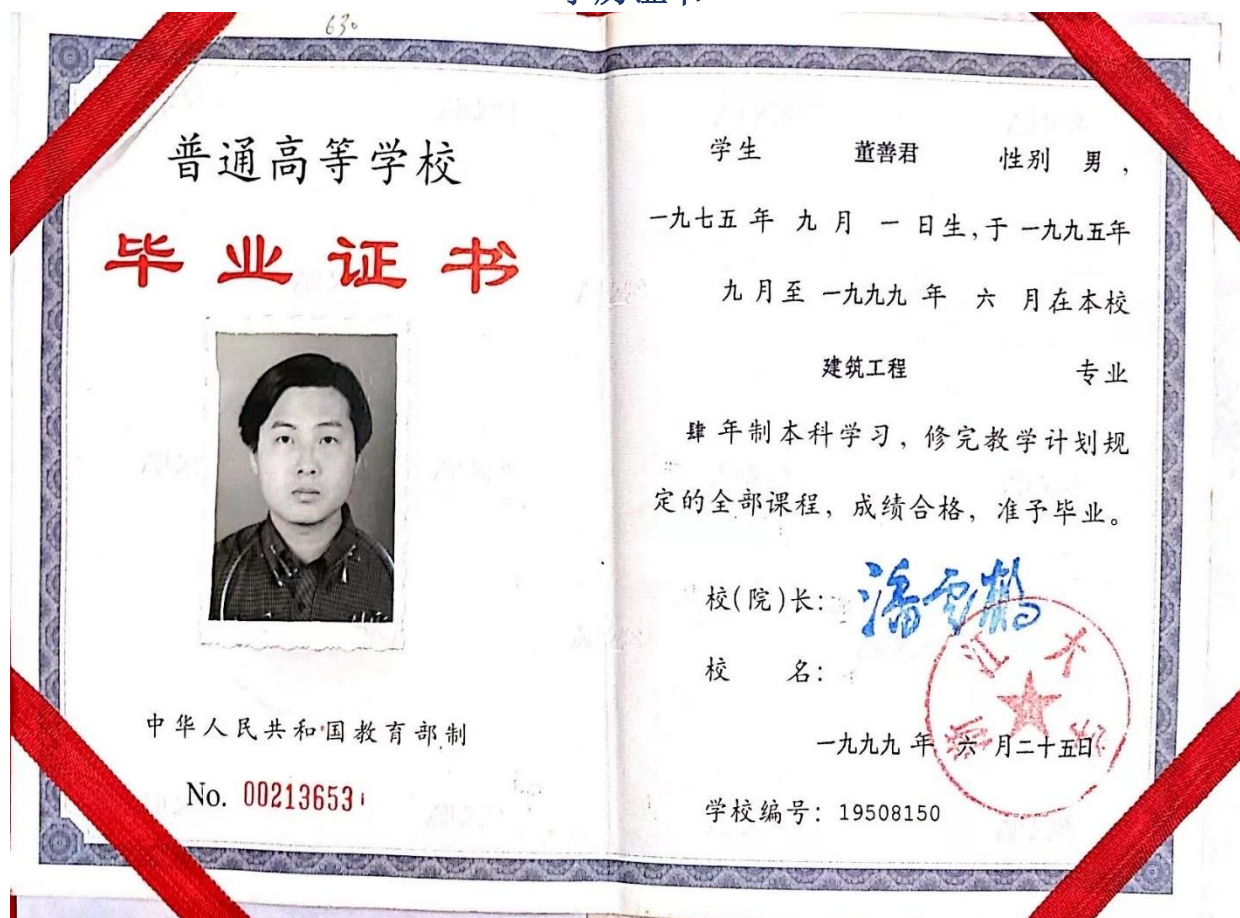 630
普通高等学校
毕业证书
中华人民共和国教育部制
No. 00213653
学生 董善君 性别 男，
一九七五年 九月 一日生，于一九九五年
九月至一九九九年 六月在本校
建筑工程 专业
肆年制本科学习，修完教学计划规
定的全部课程，成绩合格，准予毕业。
校(院)长：潘云鹤
校 名：
浙江大学
一九九九年 六月二十五日
学校编号：19508150